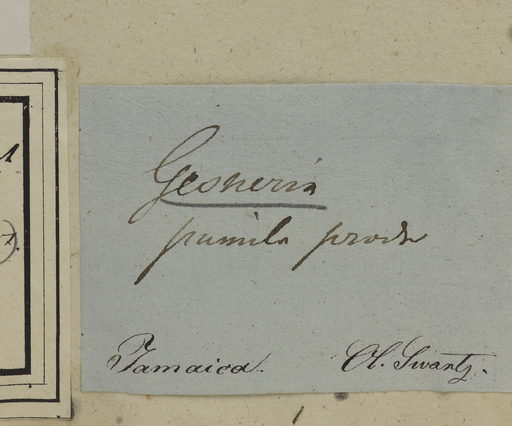 Gesneria
pumila prodr
Jamaica. Ol. Swartz.